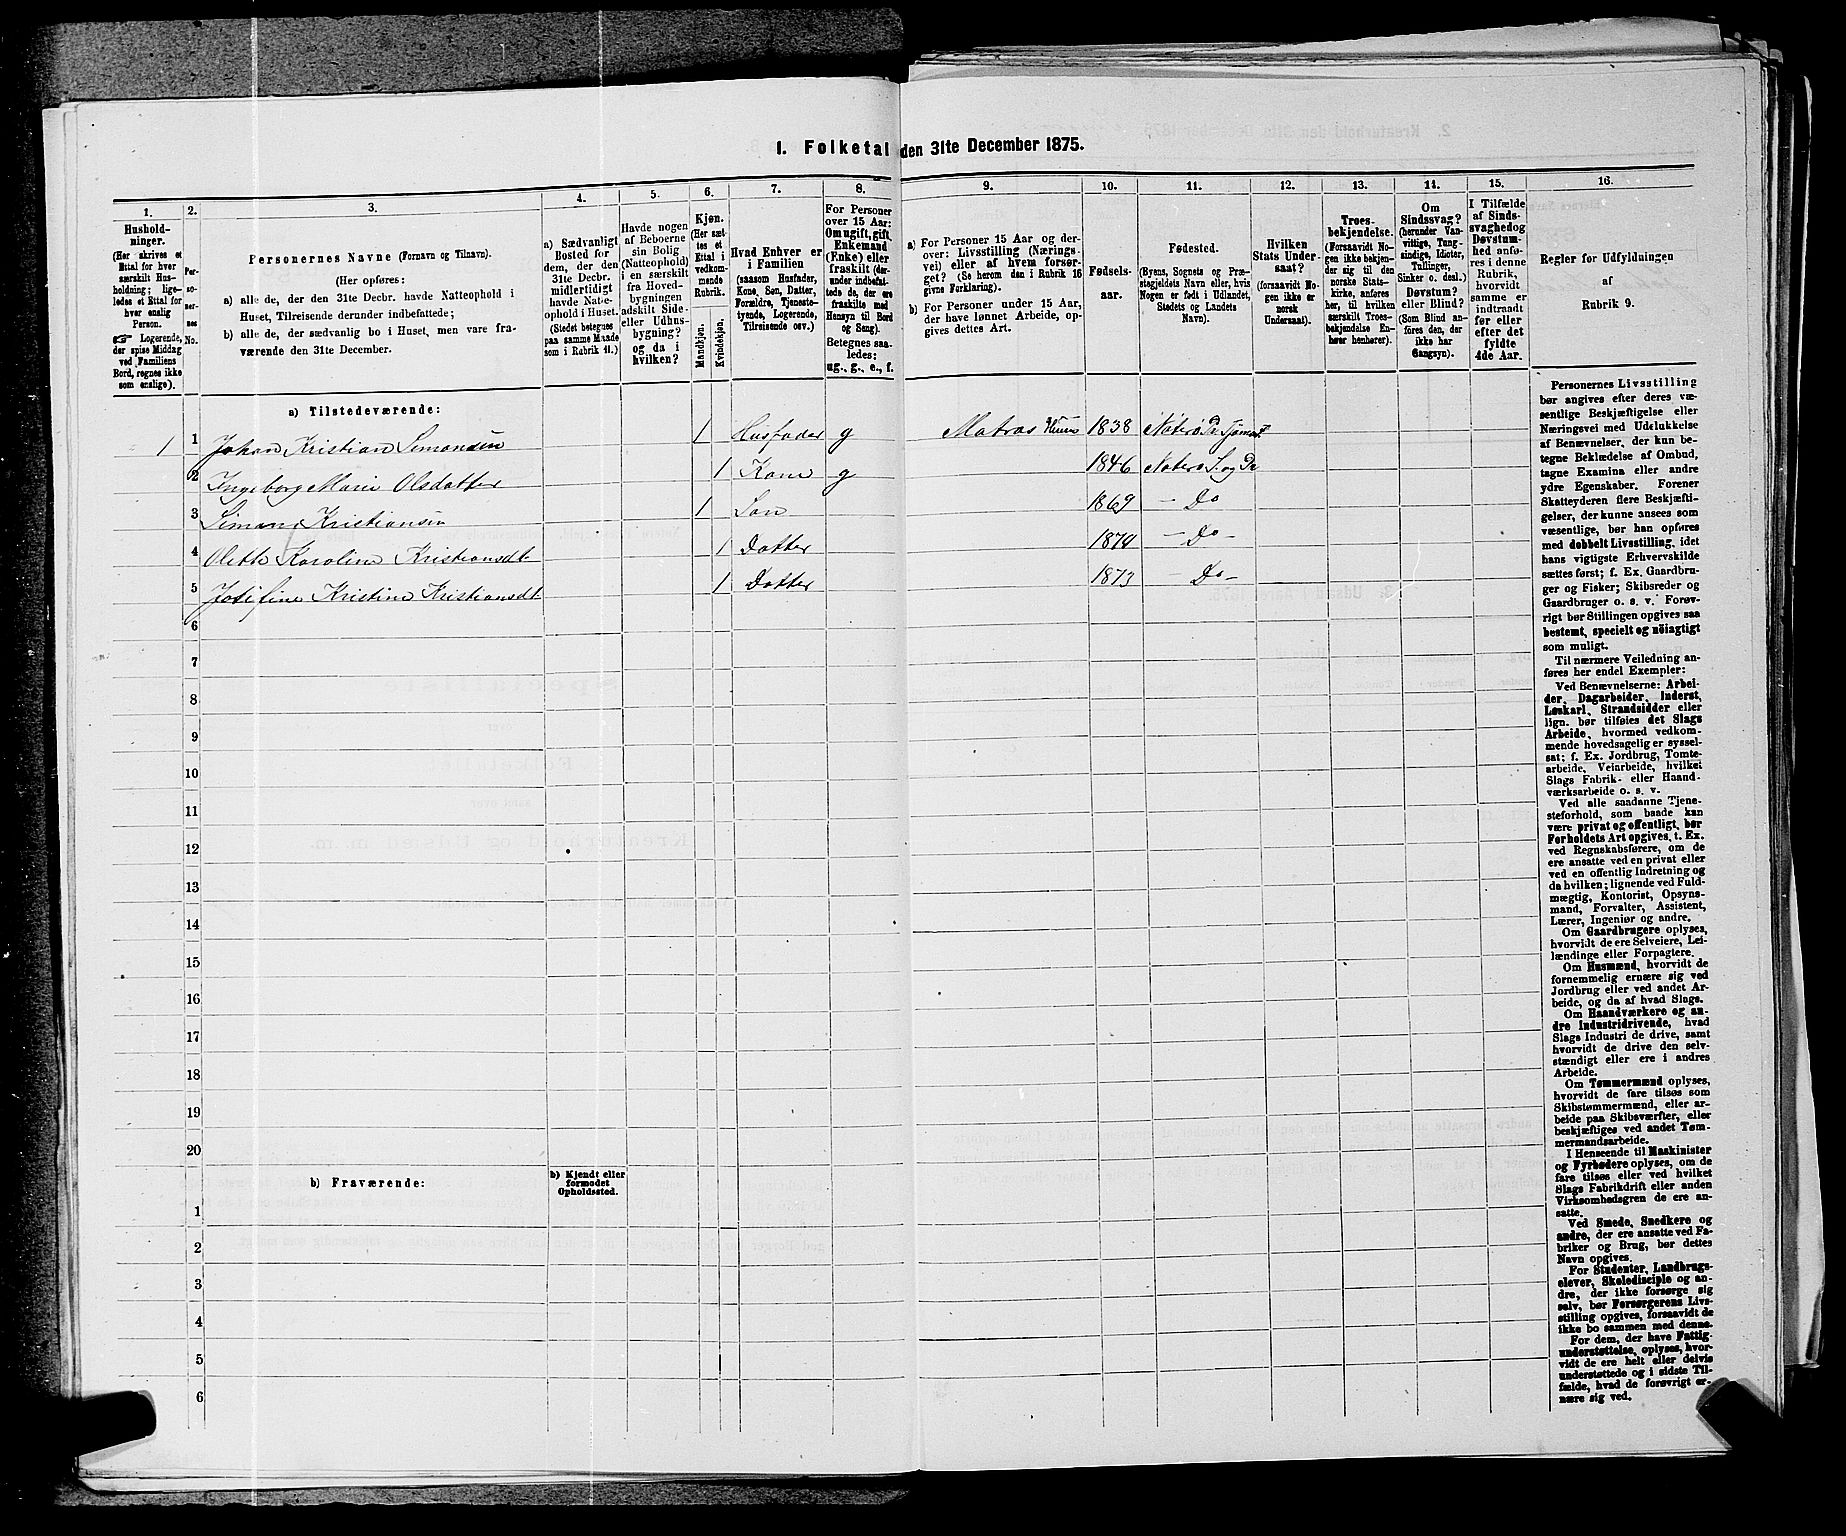 1. Folketal den 31te December 1875.
1.
Hushold-
ninger.
(Her skrives et
Ettal for hver
særskilt Hus-
holdning; lige-
ledes et Ettal for
hver enslig
Person.
☞ Logerende,
der spise Middag
ved Familiens
Bord, regnes ikke
som enslige).
2.
Per-
so-
ner-
nes
No.
3.
Personernes Navne (Fornavn og Tilnavn).
(Her opføres:
a) alle de, der den 31te Decbr. havde Natteophold i
Huset, Tilreisende derunder indbefattede;
b) alle de, der sædvanlig bo i Huset, men vare fra-
værende den 31te December.
4.
a) Sædvanligt
Bosted for
dem, der den
31te Decbr.
midlertidigt
havde Natte-
ophold i Huset.
(Stedet betegnes
paa samme Maade
som i Rubrik 11.)
5.
Havde nogen
af Beboerne
sin Bolig
(Natteophold)
i en særskilt
fra Hoved-
bygningen
adskilt Side-
eller Udhus-
bygning?
og da i
hvilken?
6.
Kjøn.
(Her sæt-
tes et
Ettal i
vedkom-
mende
Rubrik.
Mandkjøn.
Kvindekjøn.
7.
Hvad Enhver er
i Familien
(saasom Husfader,
Kone, Søn, Datter,
Forældre, Tjeneste-
tyende, Logerende,
Tilreisende osv.)
8.
For Personer
over 15 Aar:
Om ugift, gift,
Enkemand
(Enke) eller
fraskilt (der-
under indbefat-
tede de, der ere
fraskilte med
Hensyn til Bord
og Seng).
Betegnes saa-
ledes:
ug., g., e., f.
9.
a) For Personer 15 Aar og der-
over: Livsstilling (Nærings-
vei) eller af hvem forsør-
get? (Se herom den i Rubrik 16
givne Forklaring).
b) For Personer under 15 Aar,
der have lønnet Arbeide, op-
gives dettes Art.
10.
Fødsels-
aar.
11.
Fødested.
(Byens, Sognets og Præ-
stegjeldets Navn eller, hvis
Nogen er født i Udlandet,
Stedets og Landets
Navn).
12.
Hvilken
Stats Under-
saat?
(forsaavidt No-
gen ikke er
norsk
Undersaat).
13.
Troes-
bekjendelse.
(Forsaavidt No-
gen ikke bekjen-
der sig til den
norske Stats-
kirke, anføres
her, til hvilken
særskilt Troes-
bekjendelse En-
hver henhører).
14.
Om
Sindssvag?
(herunder Van-
vittige, Tung-
sindige, Idioter,
Tullinger,
Sinker o. desl.)
Døvstum?
eller Blind?
(Som Blind an-
føres den, der
ikke har
Gangsyn).
15.
I Tilfælde
af Sinds-
svaghed og
Døvstum-
hed anfø-
res i denne
Rubrik,
hvorvidt
samme er
indtraadt
før eller
efter det
fyldte
4de Aar.
16.
Regler for Udfyldningen
af
Rubrik 9.
a) Tilstedeværende:
1 1 Johan Kristian Simonsen 1 Husfader g Matros 1838 Nøterø Pr Tjømø
2 Ingeborg Marie Olsdatter 1 Kone g 1846 Nøterø S. og Pr
3 Simon Kristiansen 1 Søn 1869 – Do
4 Olette Karoline Kristiansdt 1 Datter 1874 – Do –
5 Josefine Kristine Kristiansdt 1 Datter 1873 – Do –
6
7
8
9
10
11
12
13
14
15
16
17
18
19
20
b) Fraværende:
b) Kjendt eller
formodet
Opholdssted.
1
2
3
4
5
6
Personernes Livsstilling
bør angives efter deres væ-
sentlige Beskjæftigelse eller
Næringsvei med Udelukkelse
af Benævnelser, der kun be-
tegne Beklædelse af Ombud,
tagne Examina eller andre
ydre Egenskaber. Forener
Skatteyderen flere Beskjæfti-
gelser, der kunne ansees som
væsentlige, bør han opføres
med dobbelt Livsstilling, idet
hans vigtigste Erhvervskilde
sættes først; f. Ex. Gaardbru-
ger og Fisker; Skibsreder og
Gaardbruger o. s. v. Forøv-
rigt bør Stillingen opgives saa
bestemt, specielt og nöiagtigt
som muligt.
Til nærmere Veiledning an-
føres her endel Exempler:
Ved Benævnelserne: Arbei-
der, Dagarbeider, Inderst,
Løskarl, Strandsidder eller
lign. bør tilføies det Slags
Arbeide, hvormed vedkom-
mende hovedsagelig er syssel-
sat; f. Ex. Jordbrug, Tomte-
arbeide, Veiarbeide, hvilket
Slags Fabrik- eller Haand-
værksarbeide o. s. v.
Ved alle saadanne Tjene-
steforhold, som baade kan
være privat og offentligt, bør
Forholdets Art opgives, t. Ex.
ved Regnskabsførere, om de
ere ansatte ved en privat eller
ved en offentlig Indretning og
da hvilken; lignende ved Fuld-
mægtig, Kontorist, Opsyns-
mand, Forvalter, Assistent,
Lærer, Ingeniør og andre.
Om Gaardbrugere oplyses,
hvorvidt de ere Selveiere, Lei-
lændinge eller Forpagtere.
Om Husmænd, hvorvidt de
fornemmelig ernære sig ved
Jordbrug eller ved andet Ar-
beide, og da af hvad Slags.
Om Haandværkere og an-
dre Industridrivende, hvad
Slags Industri de drive, samt
hvorvidt de drive den selv-
stændigt eller ere i andres
Arbeide.
Om Tømmermænd oplyses,
hvorvidt de fare tilsøs som
Skibstømmermænd, eller ar-
beide paa Skibsværfter, eller
beskjæftiges ved andet Tøm-
mermandsarbeide.
I Henseende til Maskinister
og Fyrbødere oplyses, om de
fare tilsøs eller ved hvilket
Slags Fabrikdrift eller anden
Virksomhedsgren de ere an-
satte.
Ved Smede, Snedkere og
andre, der ere ansatte ved Fa-
briker og Brug, bør dettes
Navn opgives.
For Studenter, Landbrugs-
elever, Skoledisciple og an-
dre, der ikke forsørge sig
selv, bør Forsørgerens Livs-
stilling opgives, forsaavidt de
ikke bo sammen med denne.
For dem, der have Fattig-
understøttelse, oplyses, hvor-
vidt de ere helt eller delvis
understøttede og i sidste Til-
fælde, hvad de forøvrigt er-
nære sig ved.